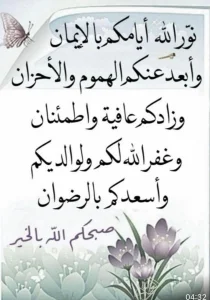 نوّر الله أيامكم بالإيمان
وأبعد عنكم الهموم والأحزان
وزادكم عافية واطمئنان
وغفر الله لكم ولوالديكم
وأسعدكم بالرضوان
صبحكم الله بالخير
04:32